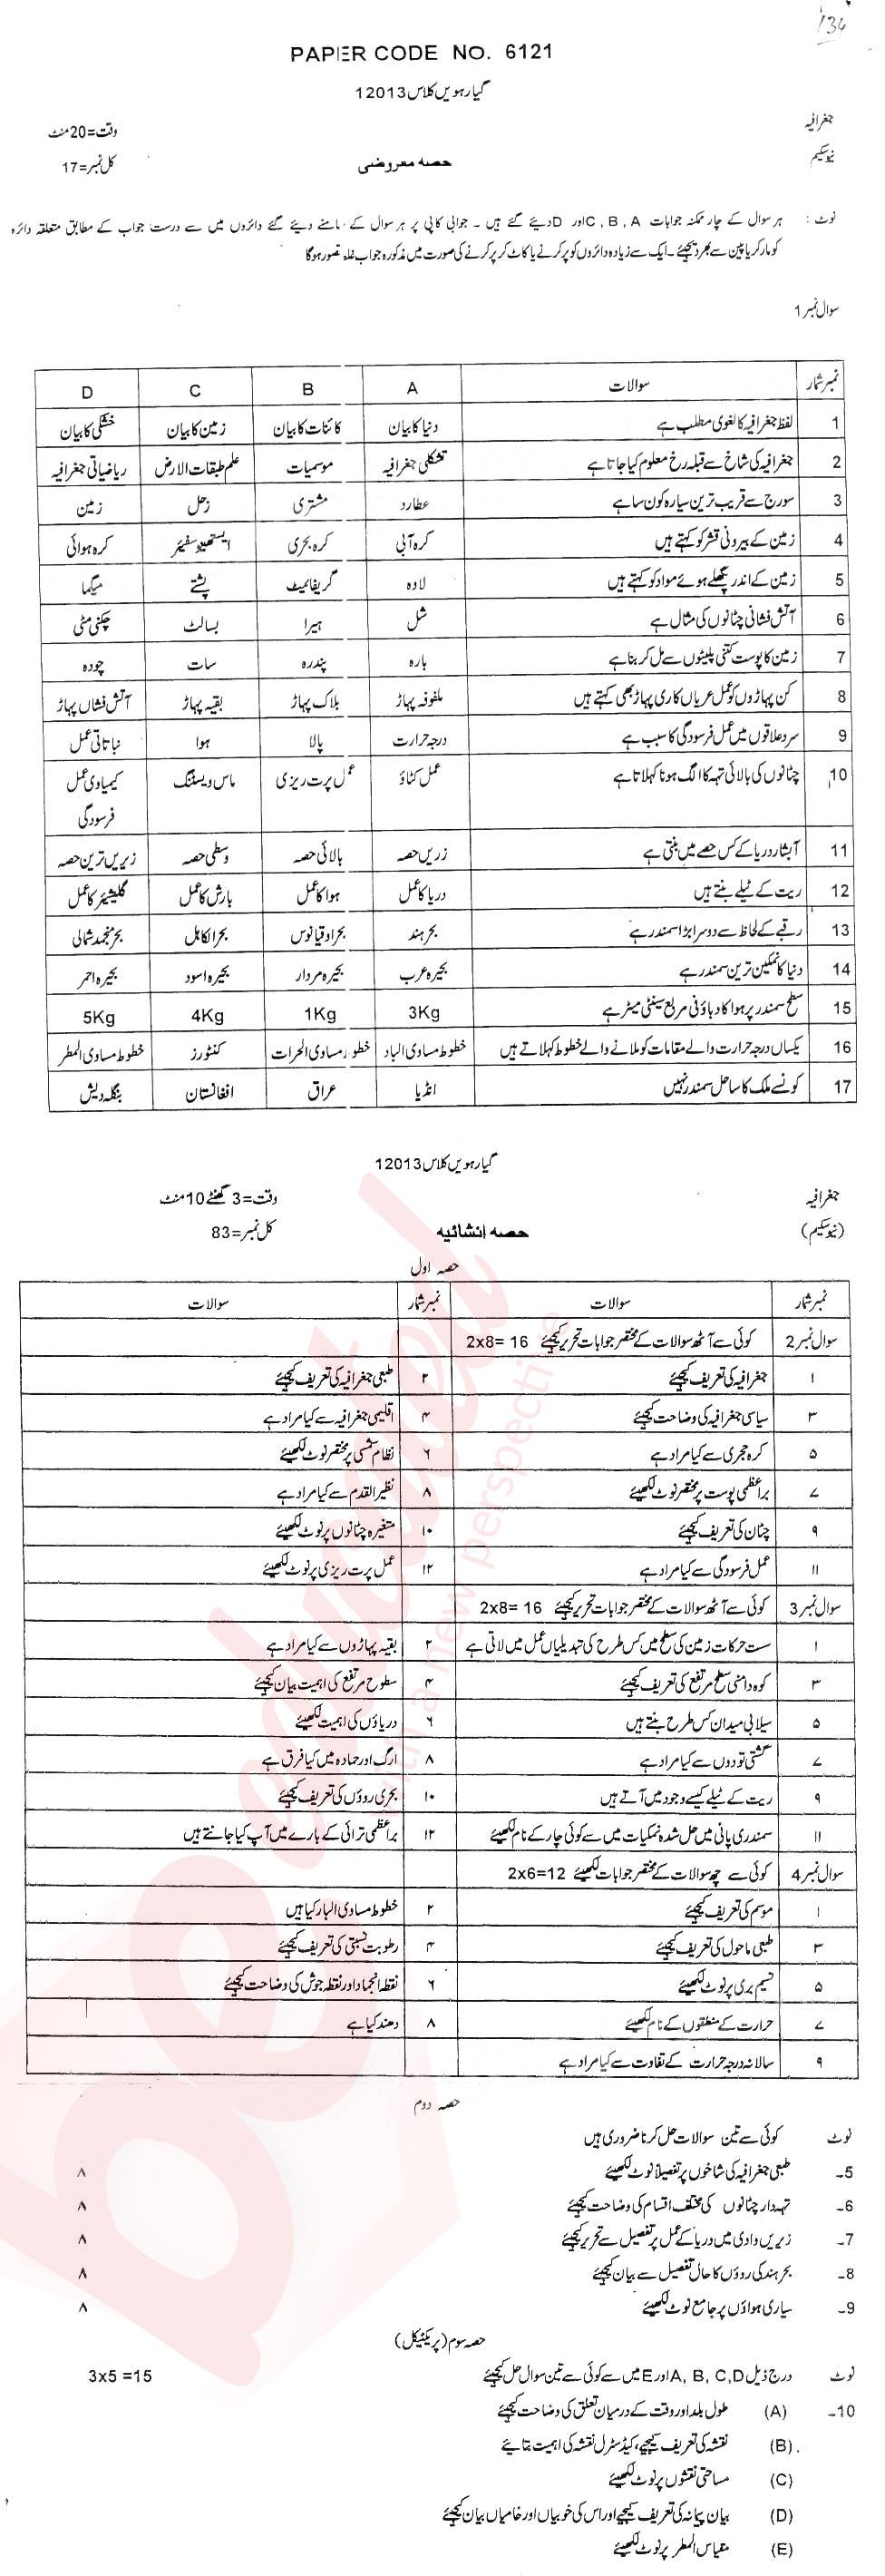 134
PAPER CODE NO. 6121
گیارہویں کلاس 12013
جغرافیہ
وقت=20 منٹ
نیوسکیم
حصہ معروضی
کل نمبر=17
نوٹ : ہر سوال کے چار ممکنہ جوابات C , B , A اور D دیئے گئے ہیں ۔ جوابی کاپی پر ہر سوال کے سامنے دیئے گئے دائروں میں سے درست جواب کے مطابق متعلقہ دائرہ
کو مارکر یا پین سے بھر دیجئیے ۔ ایک سے زیادہ دائروں کو پر کرنے یا کاٹ کر پر کرنے کی صورت میں مذکورہ جواب غلط تصور ہوگا
سوال نمبر 1
نمبرشمار سوالات A B C D
1 لفظ جغرافیہ کا لغوی مطلب ہے دنیا کا بیان کائنات کا بیان زمین کا بیان خشکی کا بیان
2 جغرافیہ کی شاخ سے قبلہ رخ معلوم کیا جاتا ہے تشکلی جغرافیہ موسمیات علم طبقات الارض ریاضیاتی جغرافیہ
3 سورج سے قریب ترین سیارہ کون سا ہے عطارد مشتری زحل زمین
4 زمین کے بیرونی قشر کو کہتے ہیں کرہ آبی کرہ بحری ایستھینو سفیئر کرہ ہوائی
5 زمین کے اندر پگھلے ہوئے مواد کو کہتے ہیں لاوہ گریفائیٹ پشتے میگما
6 آتش فشانی چٹانوں کی مثال ہے شل ہیرا بسالٹ چکنی مٹی
7 زمین کا پوست کتنی پلیٹوں سے مل کر بنا ہے بارہ پندرہ سات چودہ
8 کن پہاڑوں کو عمل عریاں کاری پہاڑ بھی کہتے ہیں ملفوفہ پہاڑ بلاک پہاڑ بقیہ پہاڑ آتش فشاں پہاڑ
9 سرد علاقوں میں عمل فرسودگی کا سبب ہے درجہ حرارت پالا ہوا نباتاتی عمل
10 چٹانوں کی بالائی تہہ کا الگ ہونا کہلاتا ہے عمل کٹاؤ عمل پرت ریزی ماس ویسٹنگ کیمیاوی عمل
فرسودگی
11 آبشار دریا کے کس حصے میں بنتی ہے زریں حصہ بالائی حصہ وسطی حصہ زیریں ترین حصہ
12 ریت کے ٹیلے بنتے ہیں دریا کا عمل ہوا کا عمل بارش کا عمل گلیشیئر کا عمل
13 رقبے کے لحاظ سے دوسرا بڑا سمندر ہے بحر ہند بحر اوقیانوس بحر الکاہل بحر منجمد شمالی
14 دنیا کا نمکین ترین سمندر ہے بحیرہ عرب بحیرہ مردار بحیرہ اسود بحیرہ احمر
15 سطح سمندر پر ہوا کا دباؤ فی مربع سینٹی میٹر ہے 3Kg 1Kg 4Kg 5Kg
16 یکساں درجہ حرارت والے مقامات کو ملانے والے خطوط کہلاتے ہیں خطوط مساوی الباد خطوط مساوی الحرات کنٹورز خطوط مساوی المطر
17 کونسے ملک کا ساحل سمندر نہیں انڈیا عراق افغانستان بنگلہ دیش
گیارہویں کلاس 12013
جغرافیہ
وقت=3 گھنٹے 10 منٹ
(نیوسکیم)
حصہ انشائیہ
کل نمبر=83
حصہ اول
نمبرشمار سوالات نمبرشمار سوالات
سوال نمبر 2 کوئی سے آٹھ سوالات کے مختصر جوابات تحریر کیجئیے 2x8= 16
۱ جغرافیہ کی تعریف کیجئیے ۲ طبعی جغرافیہ کی تعریف کیجئیے
۳ سیاسی جغرافیہ کی وضاحت کیجئیے ۴ اقلیمی جغرافیہ سے کیا مراد ہے
۵ کرہ حجری سے کیا مراد ہے ۶ نظام شمسی پر مختصر نوٹ لکھیئے
۷ براعظمی پوست پر مختصر نوٹ لکھیئے ۸ نظیر القدم سے کیا مراد ہے
۹ چٹان کی تعریف کیجئیے ۱۰ متغیرہ چٹانوں پر نوٹ لکھیئے
۱۱ عمل فرسودگی سے کیا مراد ہے ۱۲ عمل پرت ریزی پر نوٹ لکھیئے
سوال نمبر 3 کوئی سے آٹھ سوالات کے مختصر جوابات تحریر کیجئیے 2x8= 16
۱ ست حرکات زمین کی سطح میں کس طرح کی تبدیلیاں عمل میں لاتی ہے ۲ بقیہ پہاڑوں سے کیا مراد ہے
۳ کوہ دامنی سطح مرتفع کی تعریف کیجئیے ۴ سطوح مرتفع کی اہمیت بیان کیجئیے
۵ سیلابی میدان کس طرح بنتے ہیں ۶ دریاؤں کی اہمیت لکھیئے
۷ کشتی تودوں سے کیا مراد ہے ۸ ارگ اور حمادہ میں کیا فرق ہے
۹ ریت کے ٹیلے کیسے وجود میں آتے ہیں ۱۰ بحری روؤں کی تعریف کیجئیے
۱۱ سمندری پانی میں حل شدہ نمکیات میں سے کوئی چار کے نام لکھیئے ۱۲ براعظمی ترائی کے بارے میں آپ کیا جانتے ہیں
سوال نمبر 4 کوئی سے چھ سوالات کے مختصر جوابات لکھیئے 2x6=12
۱ موسم کی تعریف کیجئیے ۲ خطوط مساوی البار کیا ہیں
۳ طبعی ماحول کی تعریف کیجئیے ۴ رطوبت نسبتی کی تعریف کیجئیے
۵ نسیم بری پر نوٹ لکھیئے ۶ نقطہ انجماد اور نقطہ جوش کی وضاحت کیجئیے
۷ حرارت کے منطقوں کے نام لکھیئے ۸ دھند کیا ہے
۹ سالانہ درجہ حرارت کے تفاوت سے کیا مراد ہے
حصہ دوم
نوٹ کوئی سے تین سوالات حل کرنا ضروری ہیں
5۔ طبعی جغرافیہ کی شاخوں پر تفصیلاً نوٹ لکھیئے ۸
6۔ تہہ دار چٹانوں کی مختلف اقسام کی وضاحت کیجئیے ۸
7۔ زیریں وادی میں دریا کے عمل پر تفصیل سے تحریر کیجئیے ۸
8۔ بحر ہند کی روؤں کا حال تفصیل سے بیان کیجئیے ۸
9۔ سیاری ہواؤں پر جامع نوٹ لکھیئے ۸
حصہ سوم (پریکٹیکل)
نوٹ درج ذیل A, B, C, D اور E میں سے کوئی سے تین سوال حل کیجئیے 3x5 =15
10۔ (A) طول بلد اور وقت کے درمیان تعلق کی وضاحت کیجئیے
(B) نقشہ کی تعریف کیجیے، کیڈسٹرل نقشہ کی اہمیت بتائیے
(C) مساحتی نقشوں پر نوٹ لکھیئے
(D) بیان پیمانہ کی تعریف کیجیے اور اس کی خوبیاں اور خامیاں بیان کیجئیے
(E) مقیاس المطر پر نوٹ لکھیئے
beeducated
with a new perspective